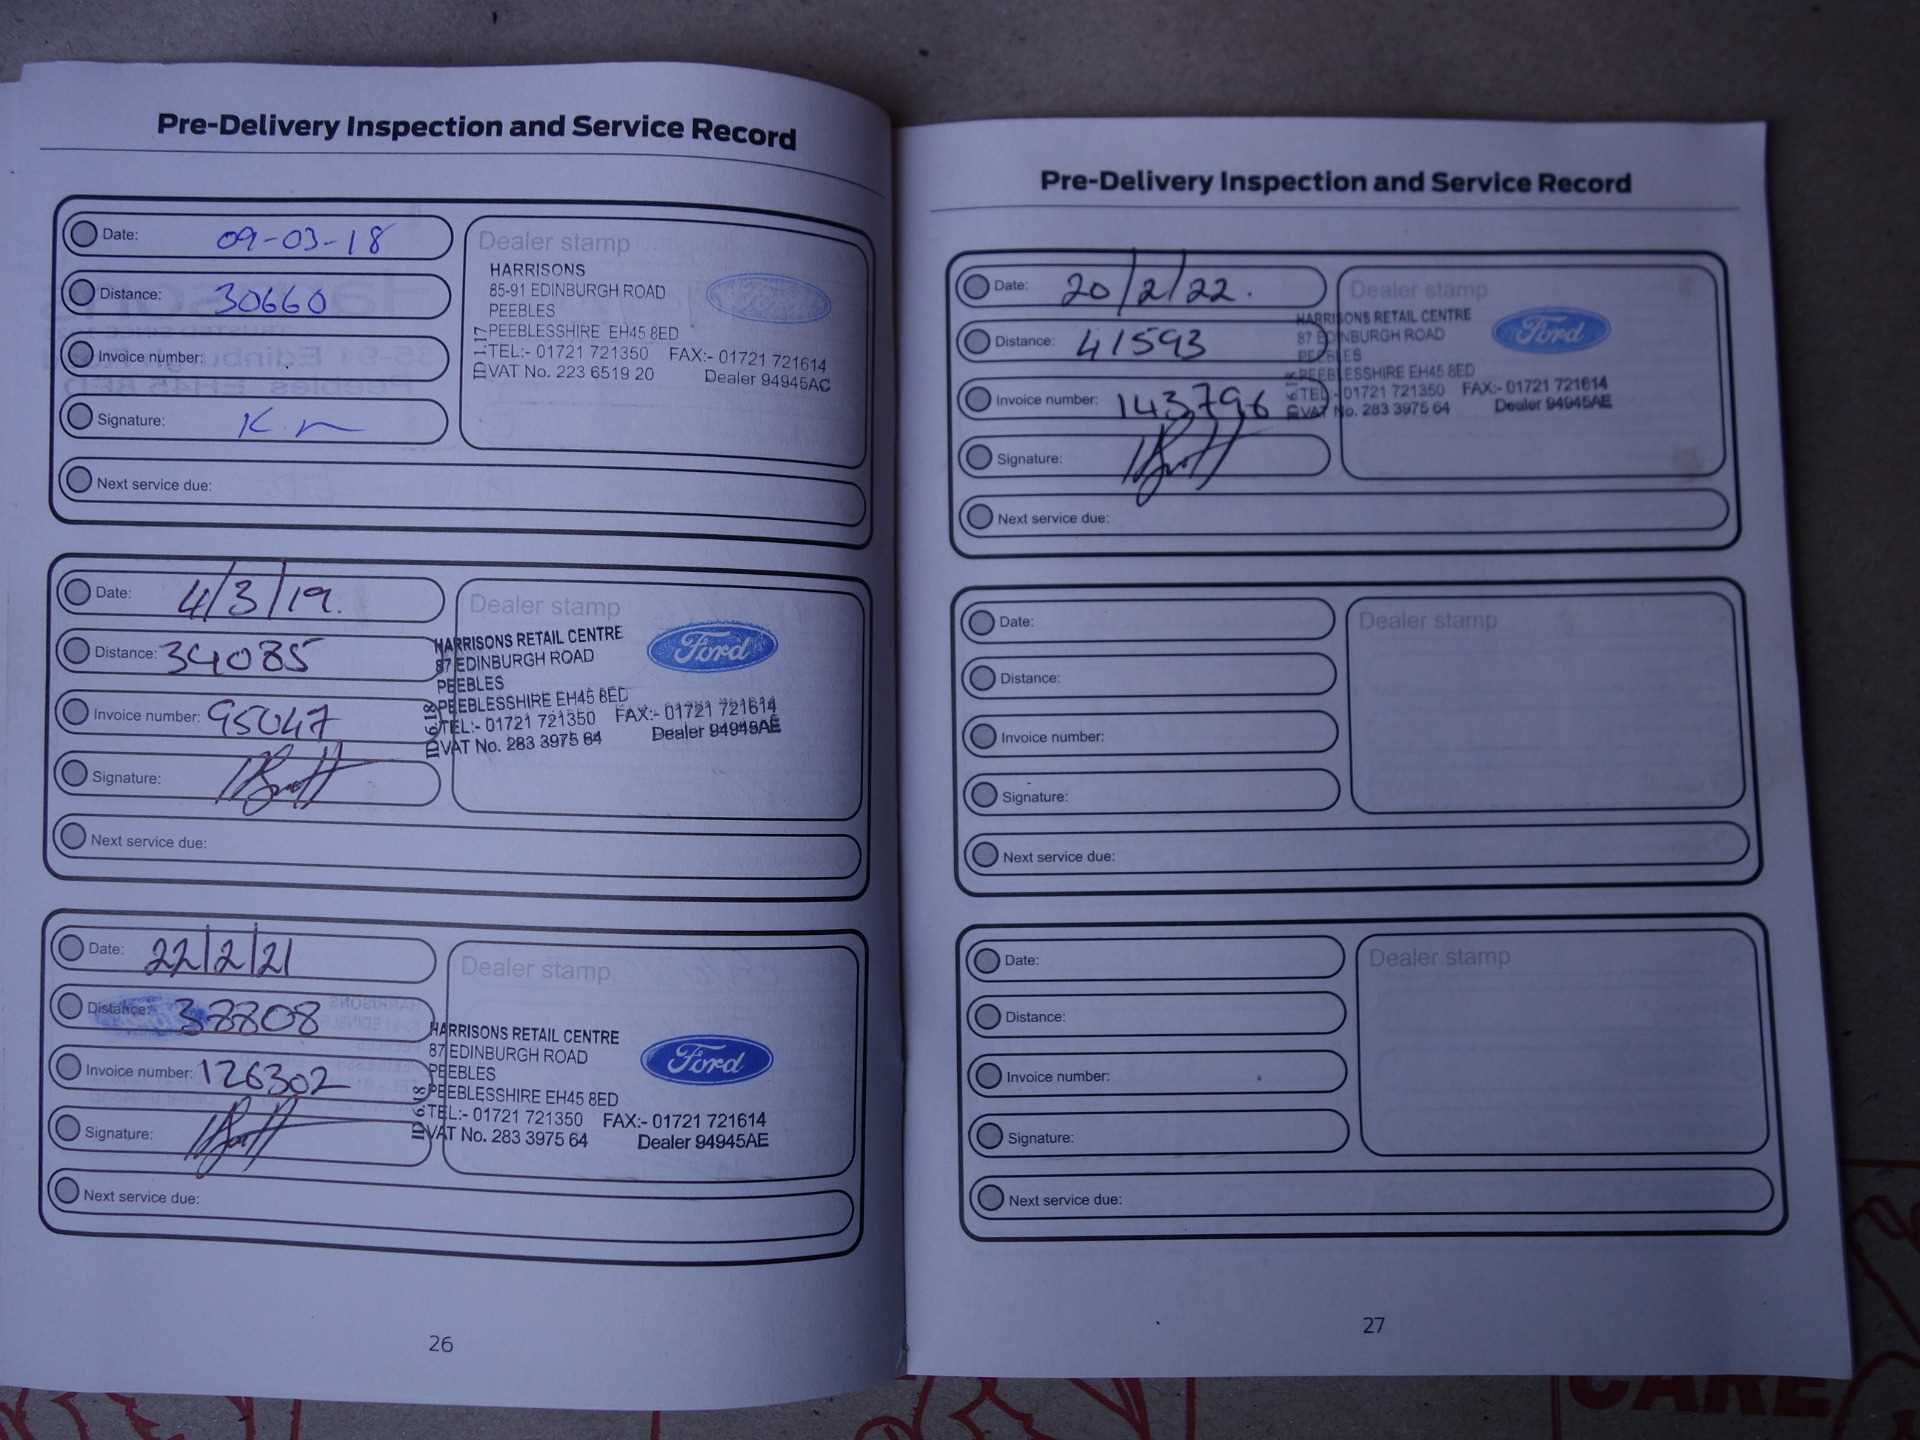 Pre-Delivery Inspection and Service Record
Date: 09-03-18
Distance: 30660
Invoice number:
Signature: K.
Next service due:
Dealer stamp
HARRISONS
85-91 EDINBURGH ROAD
PEEBLES
PEEBLESSHIRE EH45 8ED
TEL:- 01721 721350 FAX:- 01721 721614
VAT No. 223 6519 20 Dealer 94945AC
ID 1:17
Ford
Date: 4/3/19.
Distance: 34085
Invoice number: 95047
Signature:
Next service due:
Dealer stamp
HARRISONS RETAIL CENTRE
87 EDINBURGH ROAD
PEEBLES
PEEBLESSHIRE EH45 8ED
TEL:- 01721 721350 FAX:- 01721 721614
VAT No. 283 3975 64 Dealer 94945AE
ID 6.18
Ford
Date: 22/2/21
Distance: 38808
Invoice number: 126302
Signature:
Next service due:
Dealer stamp
HARRISONS RETAIL CENTRE
87 EDINBURGH ROAD
PEEBLES
PEEBLESSHIRE EH45 8ED
TEL:- 01721 721350 FAX:- 01721 721614
VAT No. 283 3975 64 Dealer 94945AE
ID 6.18
Ford
26
Pre-Delivery Inspection and Service Record
Date: 20/2/22.
Distance: 41593
Invoice number: 143796
Signature:
Next service due:
Dealer stamp
HARRISONS RETAIL CENTRE
87 EDINBURGH ROAD
PEEBLES
PEEBLESSHIRE EH45 8ED
TEL:- 01721 721350 FAX:- 01721 721614
VAT No. 283 3975 64 Dealer 94945AE
ID 6.18
Ford
Date:
Distance:
Invoice number:
Signature:
Next service due:
Dealer stamp
Date:
Distance:
Invoice number:
Signature:
Next service due:
Dealer stamp
27
CARE